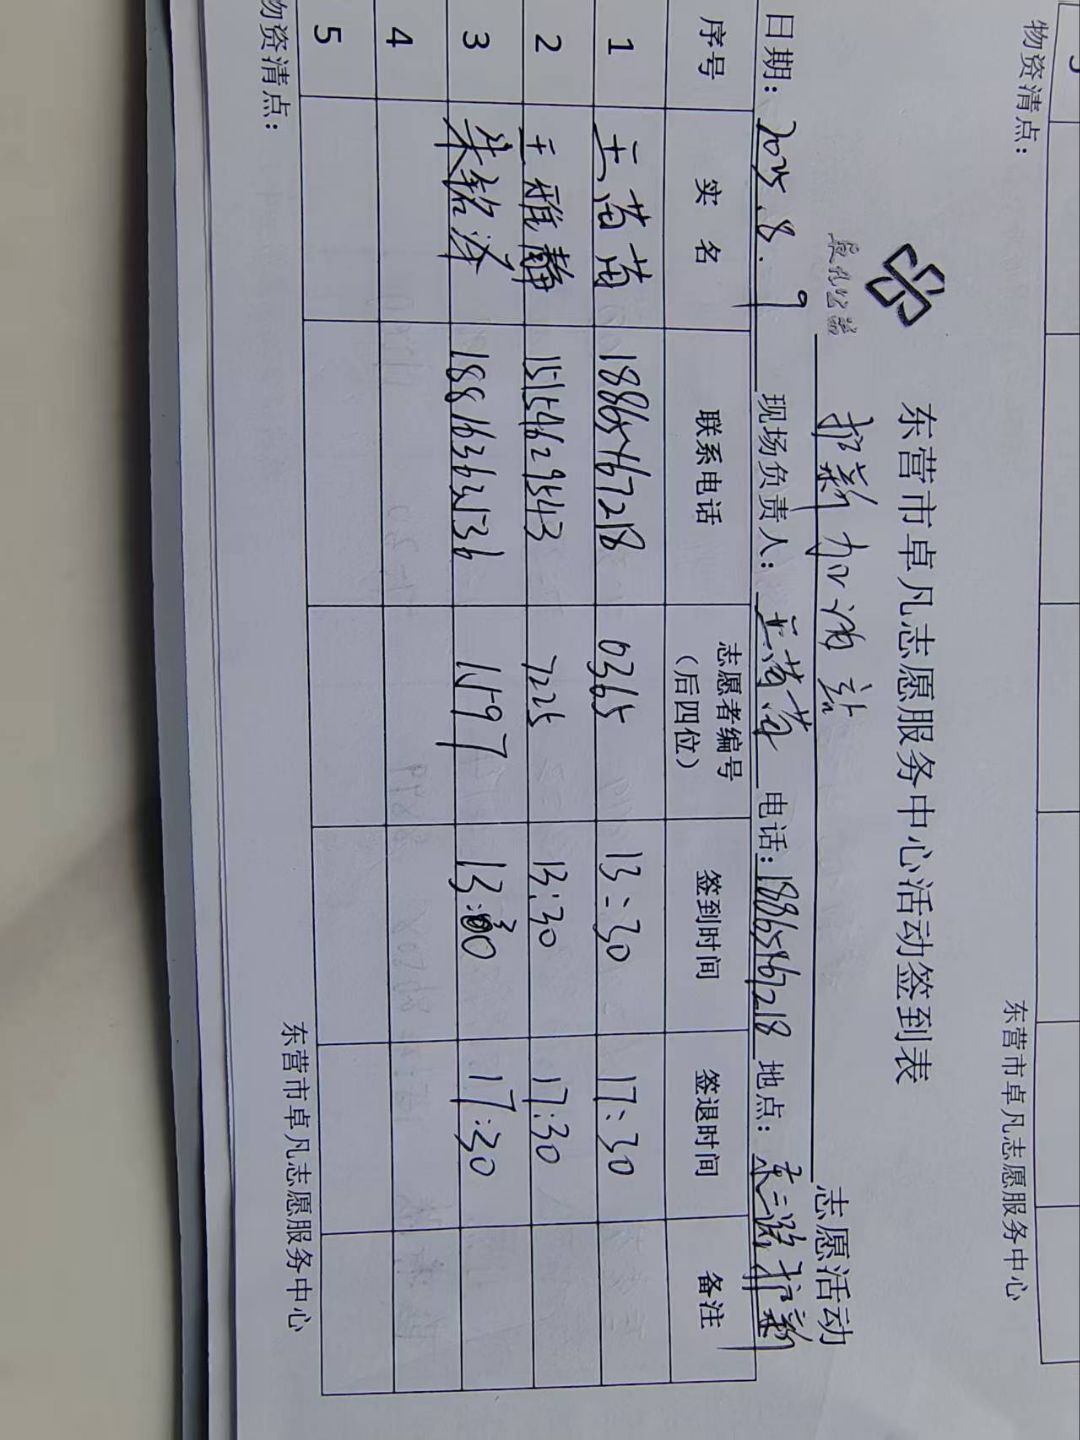 物资清点：
东营市卓凡志愿服务中心
卓凡公益
东营市卓凡志愿服务中心活动签到表
招新加油站 志愿活动
日期：2025.8.9 现场负责人：王苗苗 电话：18865467218 地点：东三路招新
序号 实名 联系电话 志愿者编号（后四位） 签到时间 签退时间 备注
1 王苗苗 18865467218 0365 13:30 17:30
2 王雅静 15154629543 7225 13:30 17:30
3 朱铭泽 1597 13:30 17:30
4
5
物资清点：
东营市卓凡志愿服务中心